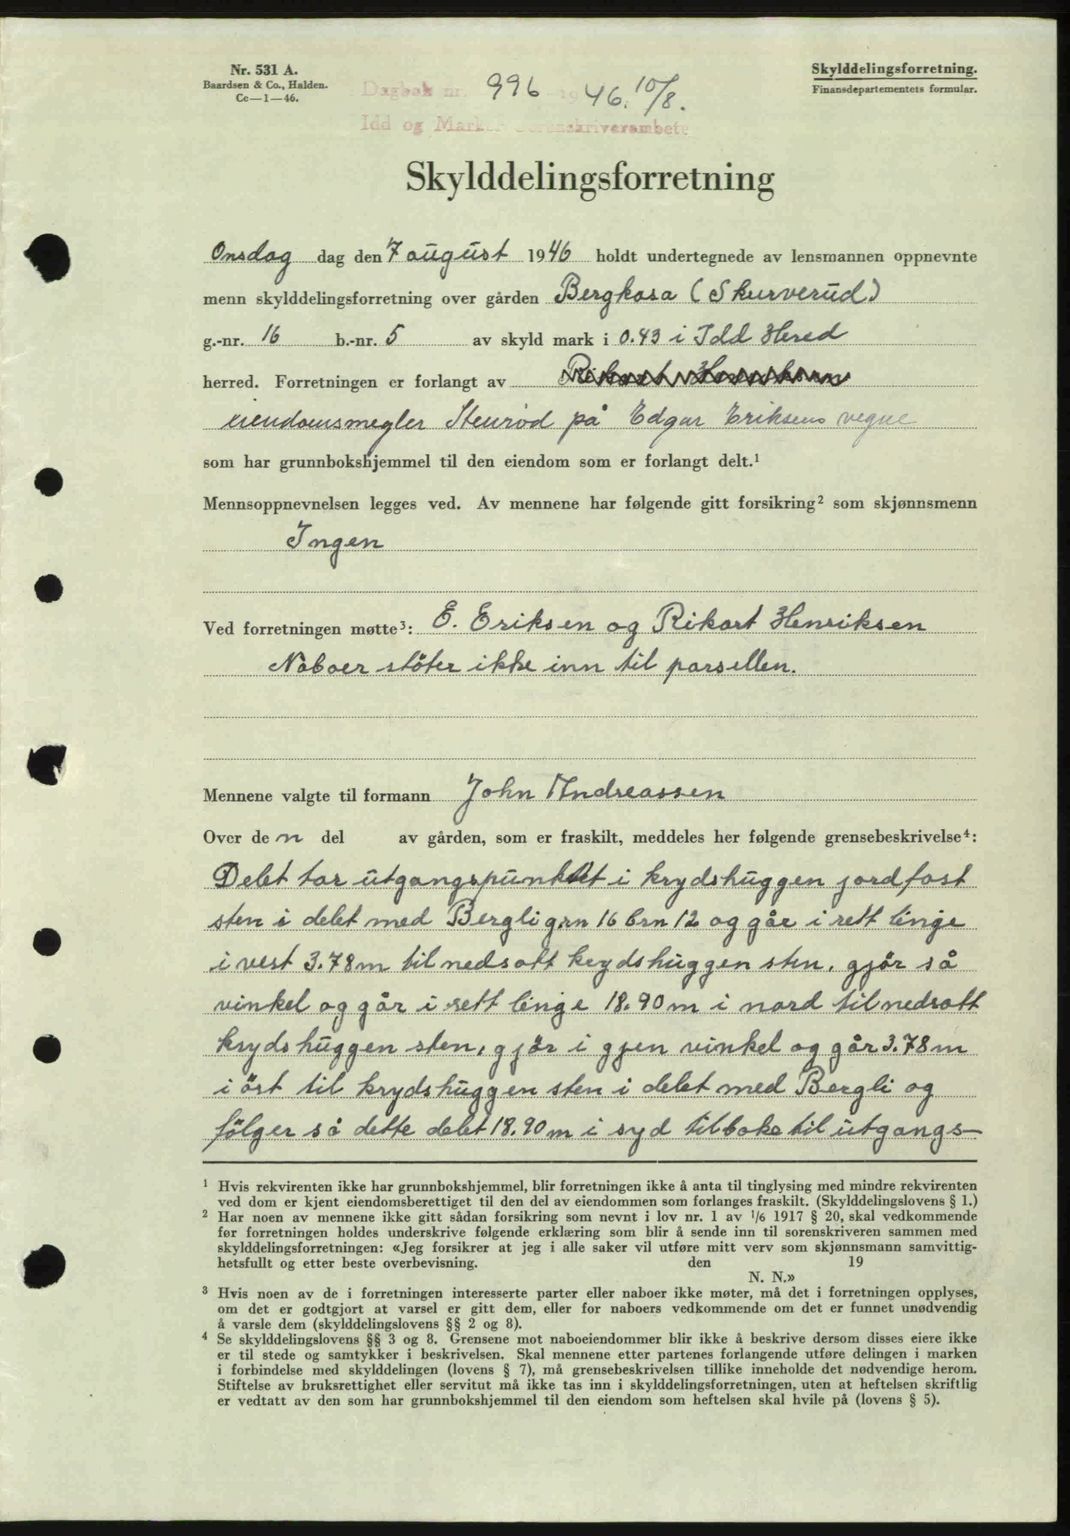 Nr. 531 A.
Baardsen & Co., Halden.
Cc—1—46.
Skylddelingsforretning.
Finansdepartementets formular.
Dagbok nr. 996 1946. 10/8.
Idd og Marker sorenskriverembete
Skylddelingsforretning
Onsdag dag den 7 august 1946 holdt undertegnede av lensmannen oppnevnte
menn skylddelingsforretning over gården Bergkasa (Skurverud)
g.-nr. 16 b.-nr. 5 av skyld mark i 0.43 i Idd Hered
herred. Forretningen er forlangt av Rikart Henriksen
eiendomsmegler Stenrød på Edgar Eriksens vegne
som har grunnbokshjemmel til den eiendom som er forlangt delt.¹
Mennsoppnevnelsen legges ved. Av mennene har følgende gitt forsikring² som skjønnsmenn
Ingen
Ved forretningen møtte³: E. Eriksen og Rikart Henriksen
Naboer støter ikke inn til parsellen.
Mennene valgte til formann John Andreassen
Over de n del av gården, som er fraskilt, meddeles her følgende grensebeskrivelse⁴:
Delet tar utgangspunktet i krydshuggen jordfast
sten i delet med Bergli g.rn 16 brn 12 og går i rett linge
i vest 3.78m til nedsatt krydshuggen sten, gjør så
vinkel og går i rett linge 18.90m i nord til nedsatt
krydshuggen sten, gjør i gjen vinkel og går 3.78m
i øst til krydshuggen sten i delet med Bergli og
følger så dette delet 18.90m i syd tilbake til utgangs-
¹ Hvis rekvirenten ikke har grunnbokshjemmel, blir forretningen ikke å anta til tinglysing med mindre rekvirenten
ved dom er kjent eiendomsberettiget til den del av eiendommen som forlanges fraskilt. (Skylddelingslovens § 1.)
² Har noen av mennene ikke gitt sådan forsikring som nevnt i lov nr. 1 av 1/6 1917 § 20, skal vedkommende
før forretningen holdes underskrive følgende erklæring som blir å sende inn til sorenskriveren sammen med
skylddelingsforretningen: «Jeg forsikrer at jeg i alle saker vil utføre mitt verv som skjønnsmann samvittig-
hetsfullt og etter beste overbevisning. den 19
N. N.»
³ Hvis noen av de i forretningen interesserte parter eller naboer ikke møter, må det i forretningen opplyses,
om det er godtgjort at varsel er gitt dem, eller for naboers vedkommende om det er funnet unødvendig
å varsle dem (skylddelingslovens §§ 2 og 8).
⁴ Se skylddelingslovens §§ 3 og 8. Grensene mot naboeiendommer blir ikke å beskrive dersom disses eiere ikke
er til stede og samtykker i beskrivelsen. Skal mennene etter partenes forlangende utføre delingen i marken
i forbindelse med skylddelingen (lovens § 7), må grensebeskrivelsen tillike inneholde det nødvendige herom.
Stiftelse av bruksrettighet eller servitut må ikke tas inn i skylddelingsforretningen, uten at heftelsen skriftlig
er vedtatt av den som har grunnbokshjemmel til den eiendom som heftelsen skal hvile på (lovens § 5).